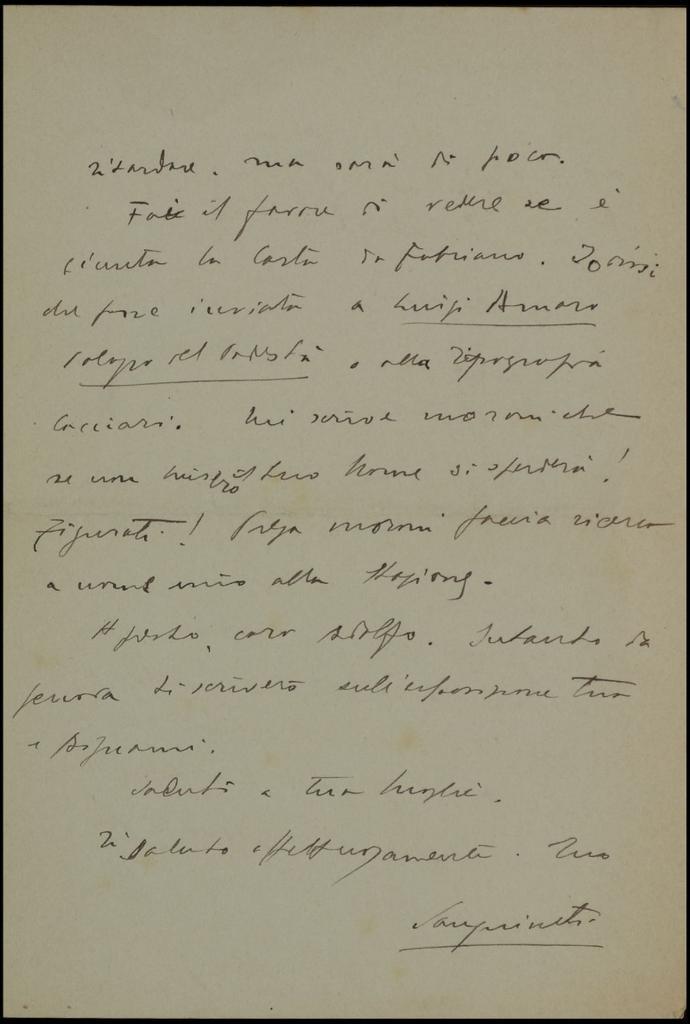 ritardare. ma sarà di poco.
Fai il favore di vedere se è
giunta la carta da Fabriano. Io dissi
che fosse inviata a Luigi Amaro
Palazzo del Podestà o alla Tipografia
Cacciari. Mi scrive che
se non il tuo nome si sperderà!
Figurati! Prega faccia ricerca
a nome mio alla Stazione.
A presto, caro Adolfo. Intanto da
Genova ti scriverò sull'esposizione tua
e
Saluti a tua moglie.
Ti saluto affettuosamente. Tuo
Sanguineti